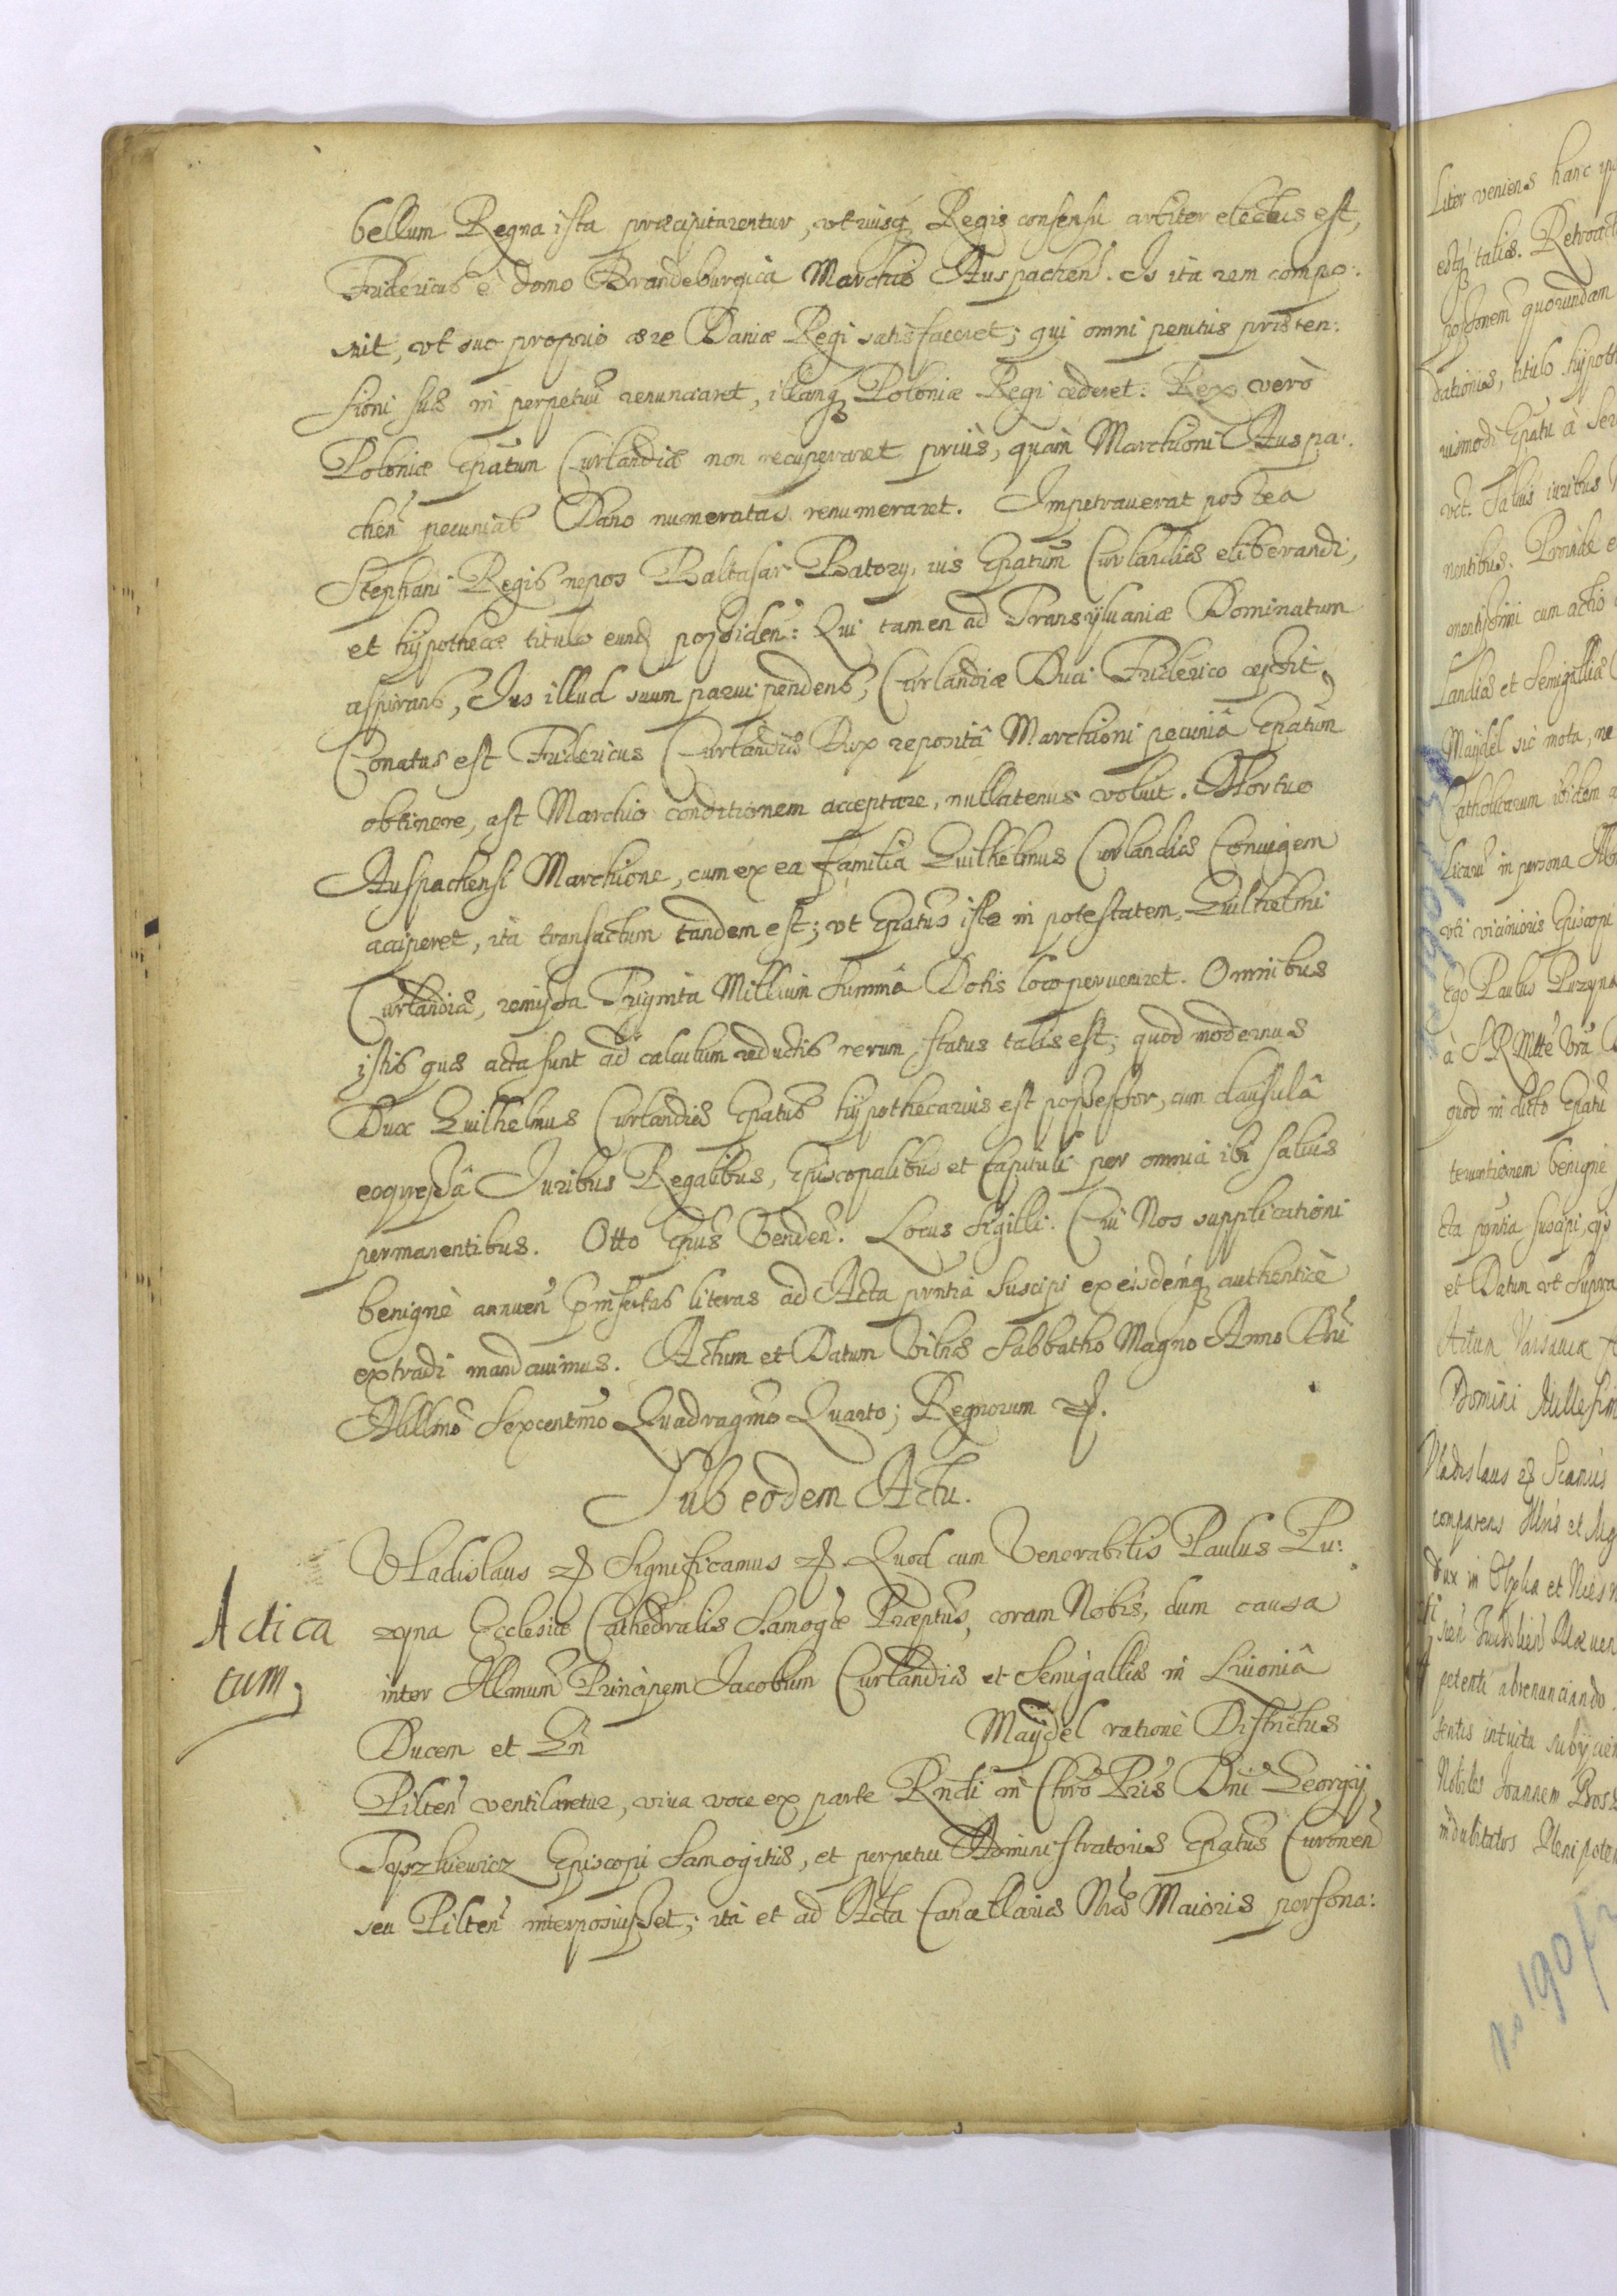 bellum Regna ista præcipitarentur, utriusq Regis consensu arbiter electus est,
Fridericus è domo Brandeburgica Marchio Auspachen. Is ita rem compo:
nit, ut suo proprio ære Daniæ Regi satisfaceret; qui omni penitus præten:
sioni suæ in perpetuu renunciaret, illamq Poloniæ Regi cederet: Rex verò
Poloniæ Epatum Curlandiæ non recuperaret priùs, quàm Marchioni Auspa:
chen pecunias Dano numeratas renumeraret. Impetraverat postea
Stephani Regis nepos Baltasar Batory, ius Epatum Curlandiæ eliberandi,
et hypothecæ titulo eund possiden: Qui tamen ad Transylvaniæ Dominatum
aspirans, Jus illud suum parui pendens, Curlandiæ Duci Friderico cessit,
Conatus est Fridericus Curlandiæ Dux repositâ Marchioni pecuniâ Epatum
obtinere, ast Marchio conditionem acceptare, nullatenus voluit. Mortuo
Auspachensi Marchione, cum ex ea familia Guilhelmus Curlandiæ Coniugem
acciperet, ita transactum tandem est; ut Epatus iste in potestatem, Guilhelmi
Curlandiæ, remissa Triginta Millium Summâ Dotis loco perveniret. Omnibus
istis quæ acta sunt ad calculum reductis rerum status talis est; quod modernus
Dux Guilhelmus Curlandiæ Epatus hypothecarius est possessor, cum clausulâ
expressâ Juribus Regalibus, Episcopalibus et Capituli per omnia ibi salvis
permanentibus. Otto Epus Venden. Locus Sigilli. Cui Nos supplicationi
benignè annuen præinsertas literas ad Acta pntia suscipi ex eisdemq authenticè
extradi mandavimus. Actum et Datum Vilnæ Sabbatho Magno Anno Dni
Millmo Sexcentmo Quadragmo Quarto; Regnorum
Sub eodem Actu.
Vladislaus Significamus Quod cum Venerabilis Paulus Pu:
zyna Ecclesiæ Cathedralis Samogiæ Præptus, coram Nobis, dum causa
Actica
tum
inter Illmum Principem Jacobum Curlandiæ et Semigalliæ in Livoniâ
Ducem et Gn Maydel ratione Districtus
Pilten ventilaretur, viva voce ex parte Rndi in Chro Pris Dni Georgij
Tyszkiewicz Episcopi Samogitiæ, et perpetui Administratoris Epatus Curonen
seu Pilten interposuisset; ita et ad Acta Cancellariæ Nræ Maioris persona:
liter veniens hanc
estq talis.
possionem quorundam
dationis, titulo hypoth
uismodi Epatu à
vct. Salvis iuribus
nentibus. Proinde
mentissimi cum actio
landiæ et Semigalliæ
Maydel sic mota, ne
Catholicarum ibidem
in persona
uti vicinioris Episcopi
Ego Paulus Puzyna
à S R Mtte Vra
quod in dicto Epatu
benigne
cta pntia suscipi,
et Datum ut supra
Actum Varsaviæ
Domini Millesim
Vladislaus
comparens
dux in
petenti abrenunciando
sentis intuitu
Nobiles Joannem
indubitatos Plenipoten